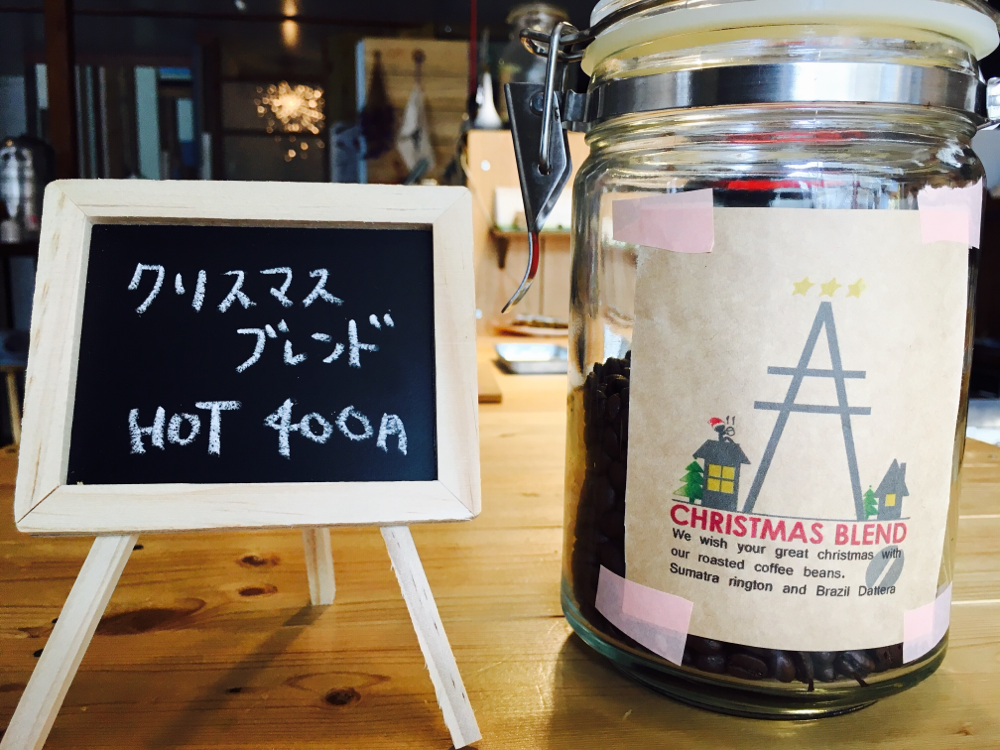 クリスマス
ブレンド
HOT 400円
CHRISTMAS BLEND
We wish your great christmas with
our roasted coffee beans.
Sumatra rington and Brazil Dattera